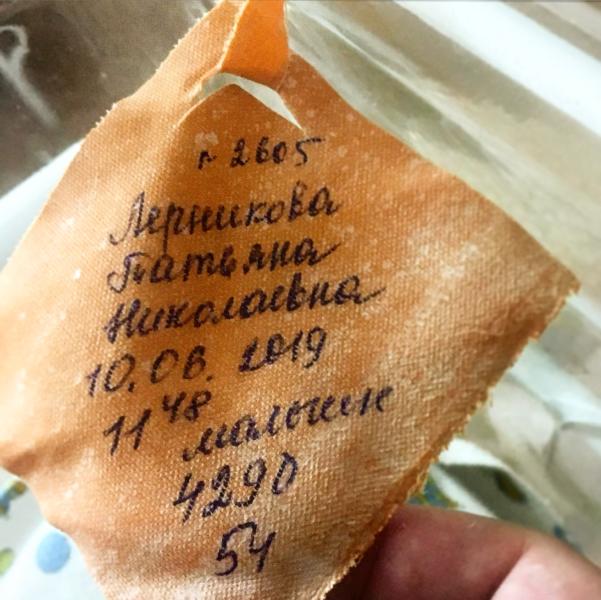 г 2605
Лерникова
Татьяна
Николаевна
10.06.2019
11 48
мальчик
4290
54